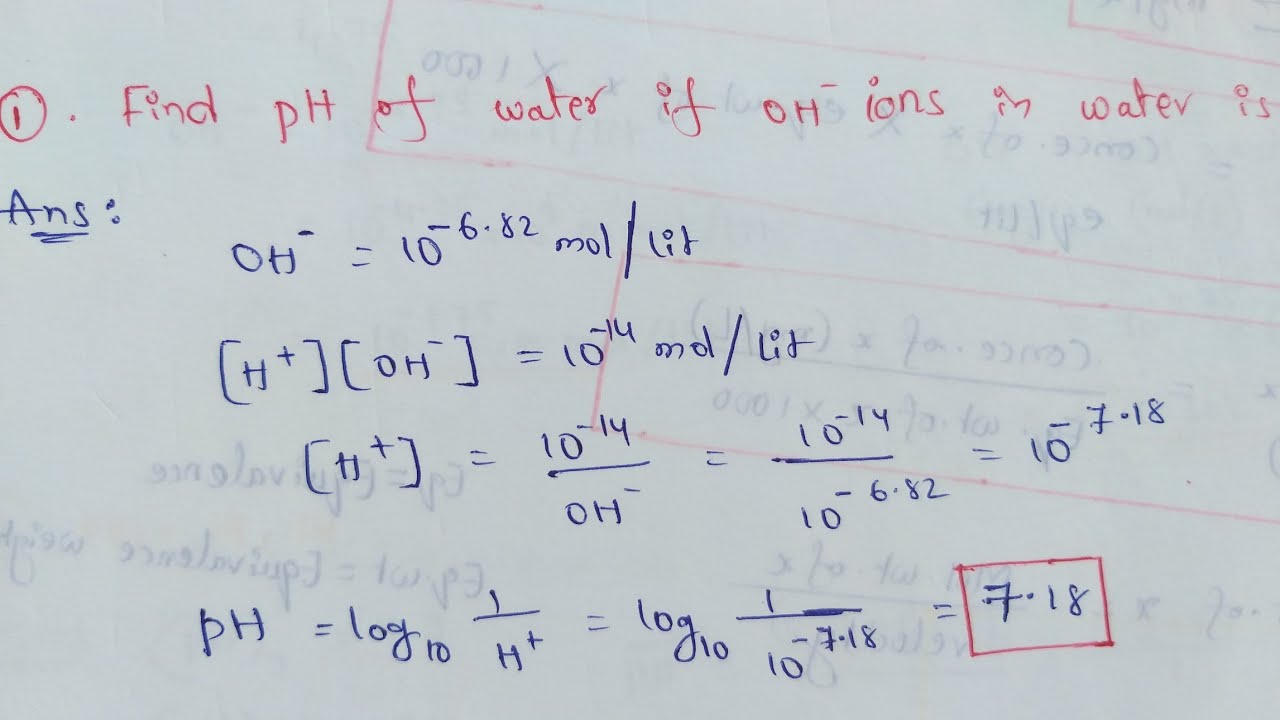 ①. Find pH of water if OH⁻ ions in water is
Ans:
OH⁻ = 10^-6.82 mol/lit
[H⁺][OH⁻] = 10^-14 mol/lit
[H⁺] = 10^-14 / OH⁻ = 10^-14 / 10^-6.82 = 10^-7.18
pH = log₁₀ 1/H⁺ = log₁₀ 1/10^-7.18 = 7.18